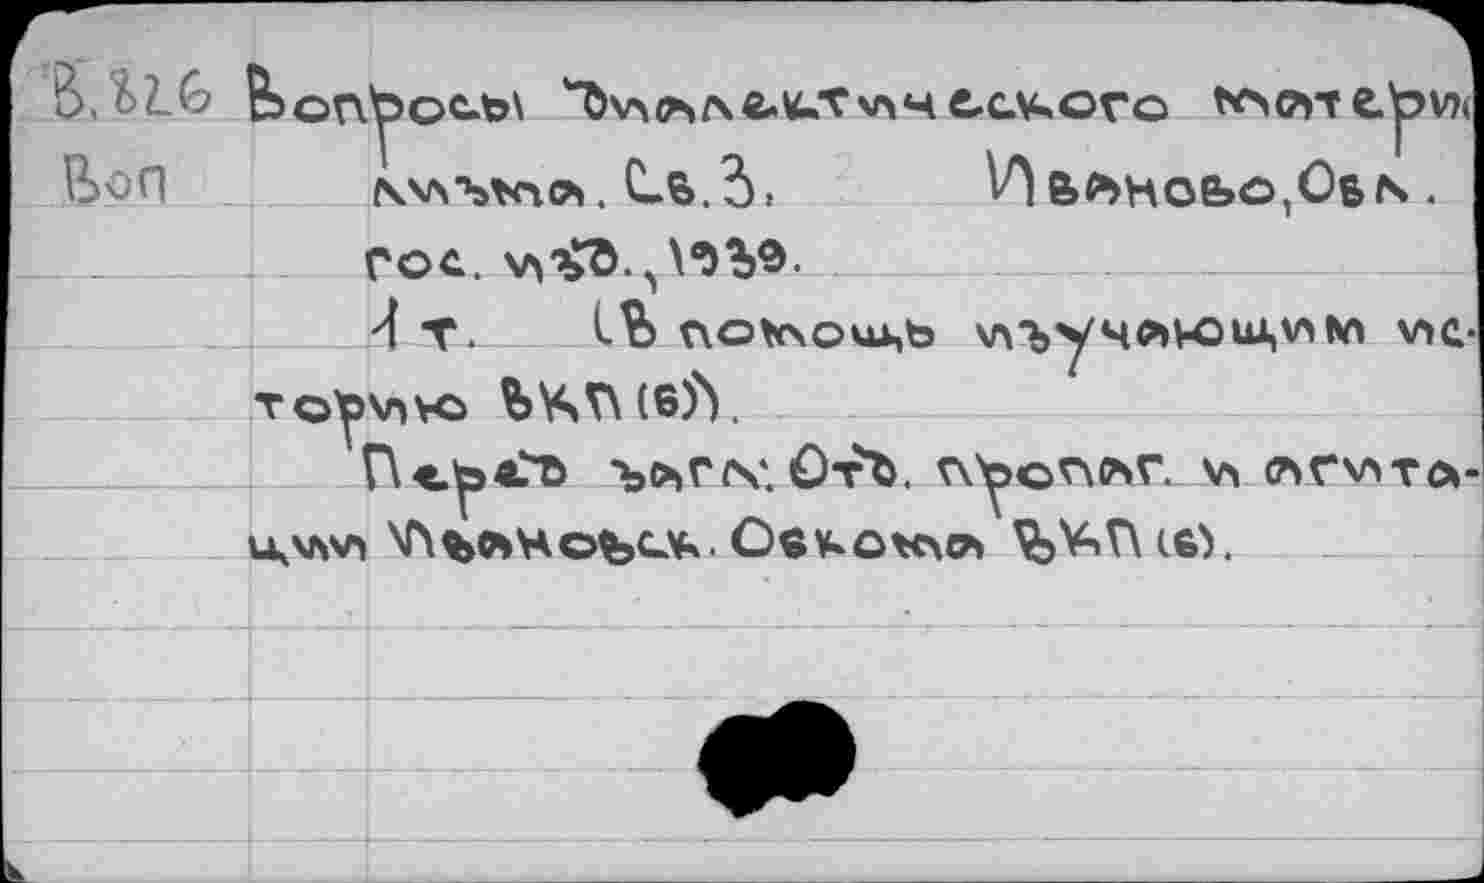 В.326 Вопросы диалектического матери
Воп ализма. Сб.3. Иваново, Обл.
гос. изд., 1939.
1 т. (В помощь изучающим ис-
торию ВКП(б)).
Перед загл: Отд. пропаг. и агита-
ции Ивановск. Обкома ВКП(б).